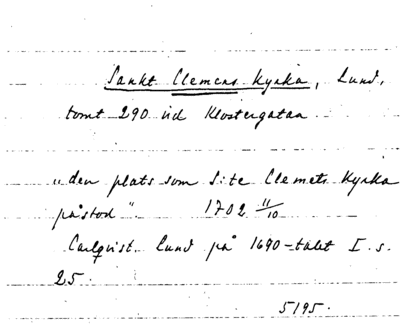 Sankt Clemens Kyrka, Lund,
tomt 290 vid Klostergatan
"den plats som S:te Clemets Kyrka
påstod". 1702 11/10
Carlqvist. Lund på 1690-talet I. s.
25.
5195.